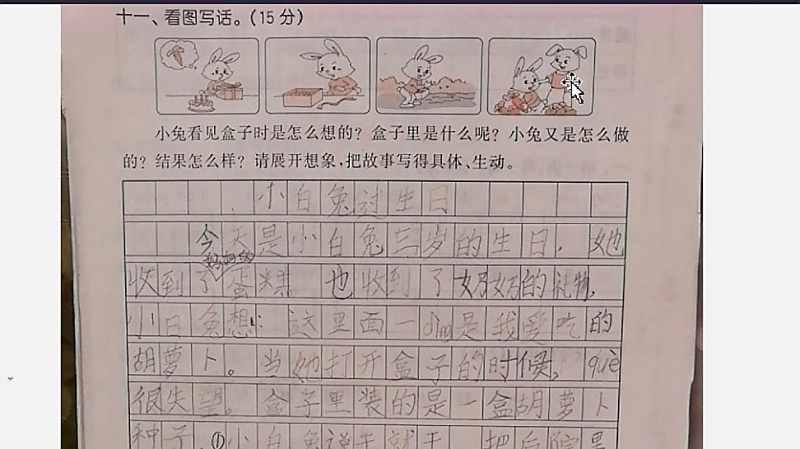 十一、看图写话。(15分)
小兔看见盒子时是怎么想的？盒子里是什么呢？小兔又是怎么做
的？结果怎么样？请展开想象,把故事写得具体、生动。
小白兔过生日
今天是小白兔三岁的生日，她
妈妈的
收到了蛋糕 也收到了奶奶的礼物,
小白兔想: 这里面一dìng是我爱吃的
胡萝卜。当她打开盒子的时候, què
很失望。盒子里装的是一盒胡萝卜
种子。小白兔说干就干 把后院里